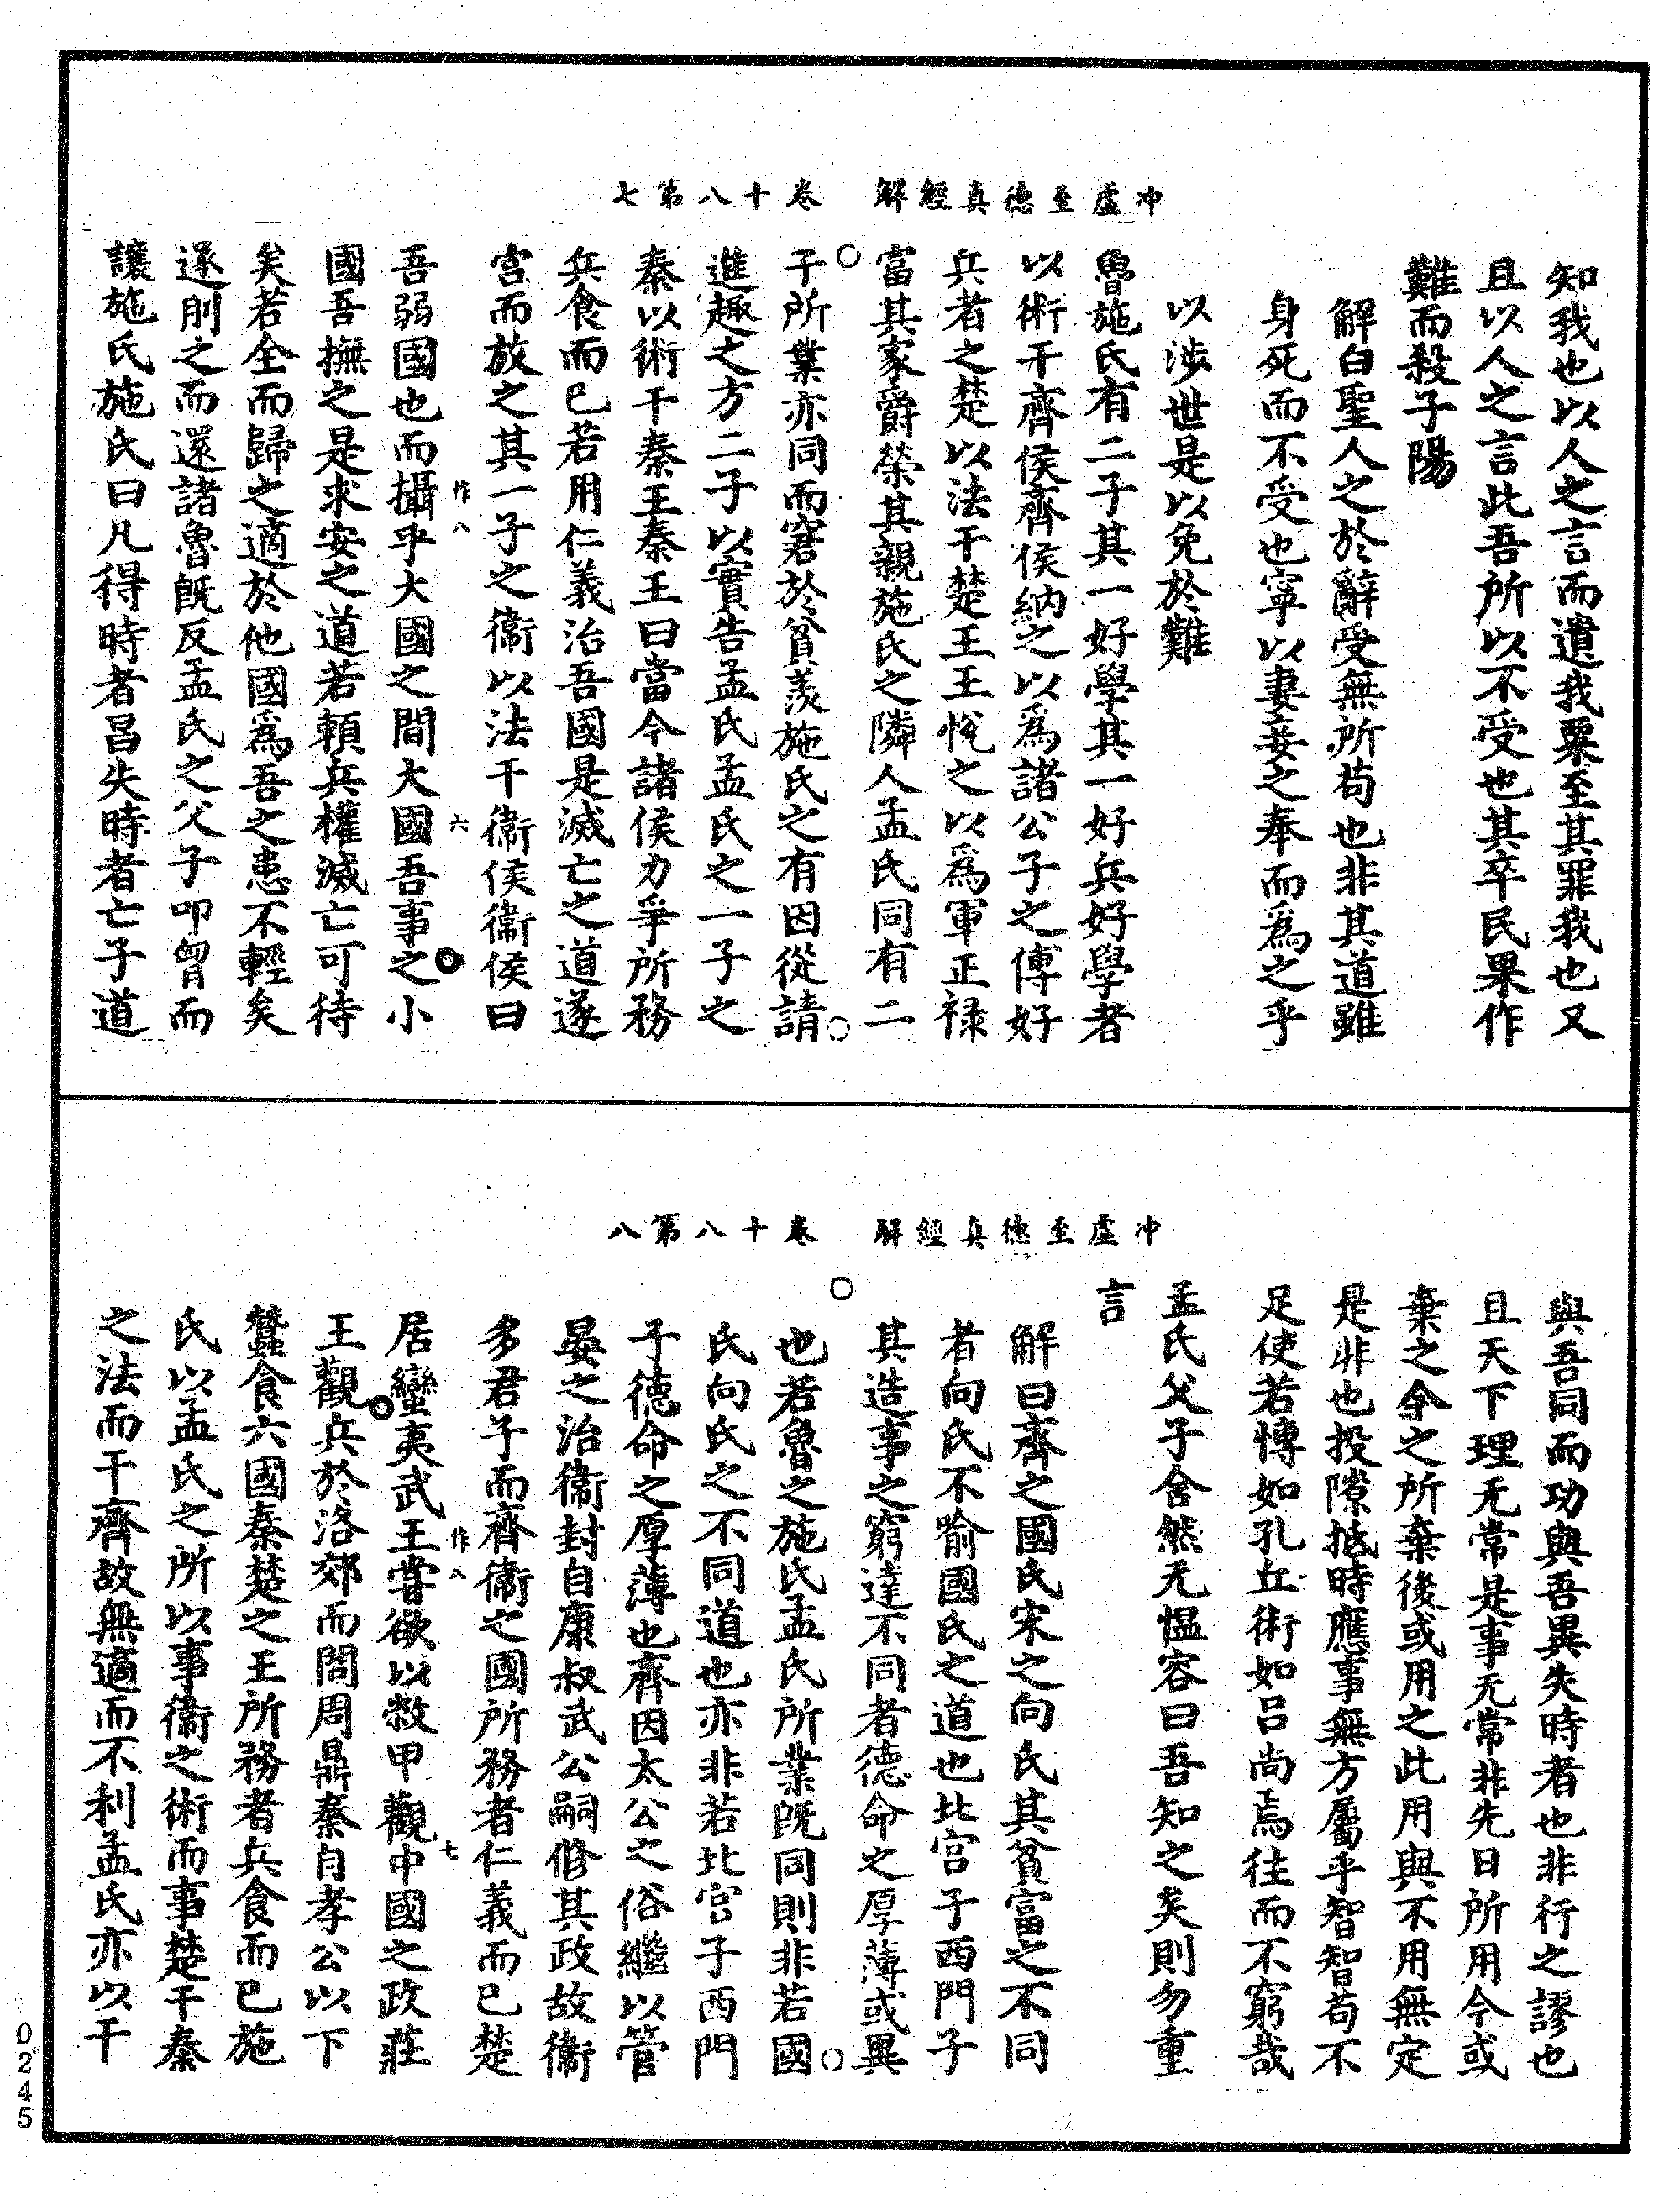 冲虛至德真經解　卷十八第七
知我也以人之言而遺我粟至其罪我也又
且以人之言此吾所以不受也其卒民果作
難而殺子陽
解曰聖人之於辭受無所苟也非其道雖
身死而不受也寧以妻妾之奉而爲之乎
以涉世是以免於難
魯施氏有二子其一好學其一好兵好學者
以術干齊侯齊侯納之以爲諸公子之傅好
兵者之楚以法干楚王王悅之以爲軍正祿
富其家爵榮其親施氏之隣人孟氏同有二
子所業亦同而窘於貧羨施氏之有因從請
進趣之方二子以實告孟氏孟氏之一子之
秦以術干秦王秦王曰當今諸侯力爭所務
兵食而已若用仁義治吾國是滅亡之道遂
宫而放之其一子之衞以法干衞侯衞侯曰
作八　六
吾弱國也而攝乎大國之間大國吾事之小
國吾撫之是求安之道若賴兵權滅亡可待
矣若全而歸之適於他國爲吾之患不輕矣
遂刖之而還諸魯旣反孟氏之父子叩胷而
讓施氏施氏曰凡得時者昌失時者亡子道
冲虛至德真經解　卷十八第八
與吾同而功與吾異失時者也非行之謬也
且天下理无常是事无常非先日所用今或
棄之今之所棄後或用之此用與不用無定
是非也投隙抵時應事無方屬乎智智苟不
足使若博如孔丘術如呂尚焉往而不窮哉
孟氏父子舍然无慍容曰吾知之矣則勿重
言
解曰齊之國氏宋之向氏其貧富之不同
者向氏不喻國氏之道也北宫子西門子
其造事之窮達不同者德命之厚薄或異
也若魯之施氏孟氏所業旣同則非若國
氏向氏之不同道也亦非若北宫子西門
子德命之厚薄也齊因太公之俗繼以管
晏之治衞封自康叔武公嗣修其政故衞
多君子而齊衞之國所務者仁義而已楚
作八　七
居蠻夷武王嘗欲以敝甲觀中國之政莊
王觀兵於洛郊而問周鼎秦自孝公以下
蠶食六國秦楚之王所務者兵食而已施
氏以孟氏之所以事衞之術而事楚干秦
之法而干齊故無適而不利孟氏亦以干
0245